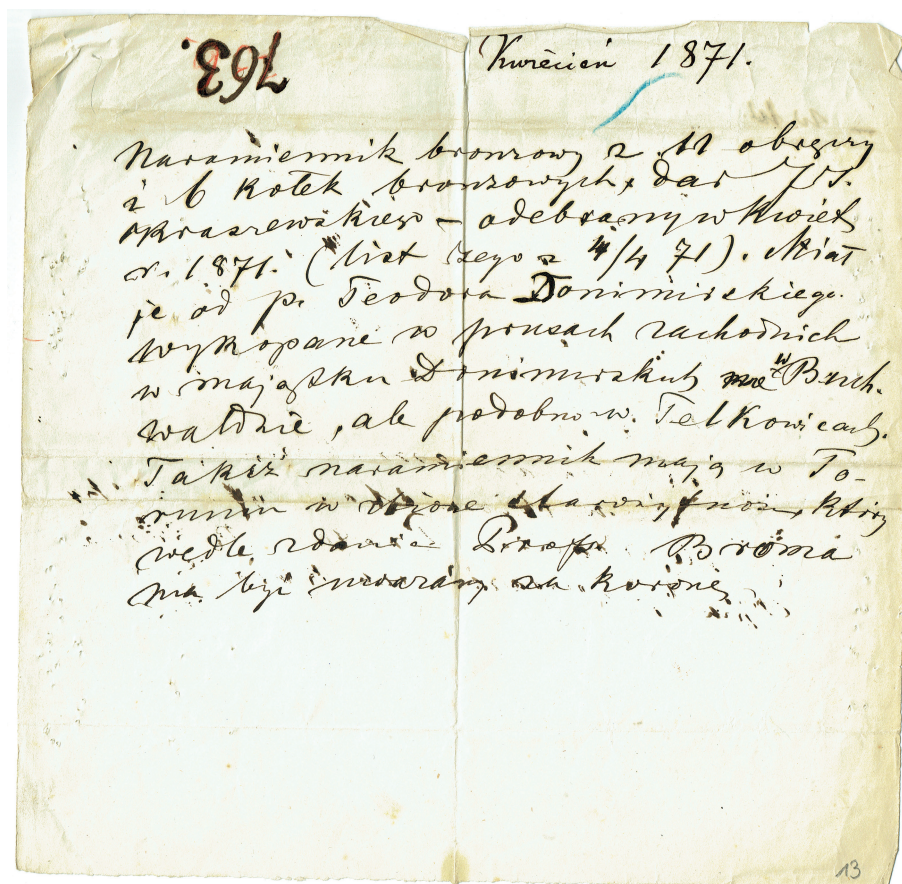 763.
Kwiecień 1871.
Naramiennik bronzowy z 11 obręczy
i 6 kołek bronzowych, dar J. I.
Kraszewskiego – odebrany w kwiet.
r. 1871. (list tego z 4/4 71). Miał
je od p. Teodora Donimirskiego.
wykopane w prusach zachodnich
w majątku Donimirskich w Buch-
wałdzie, ale podobno w Telkowicach.
Takiż naramiennik mają w To-
runiu w zbiorze starożytności, który
wedle zdania Prof. Broma
ma być uważany za koronę
13